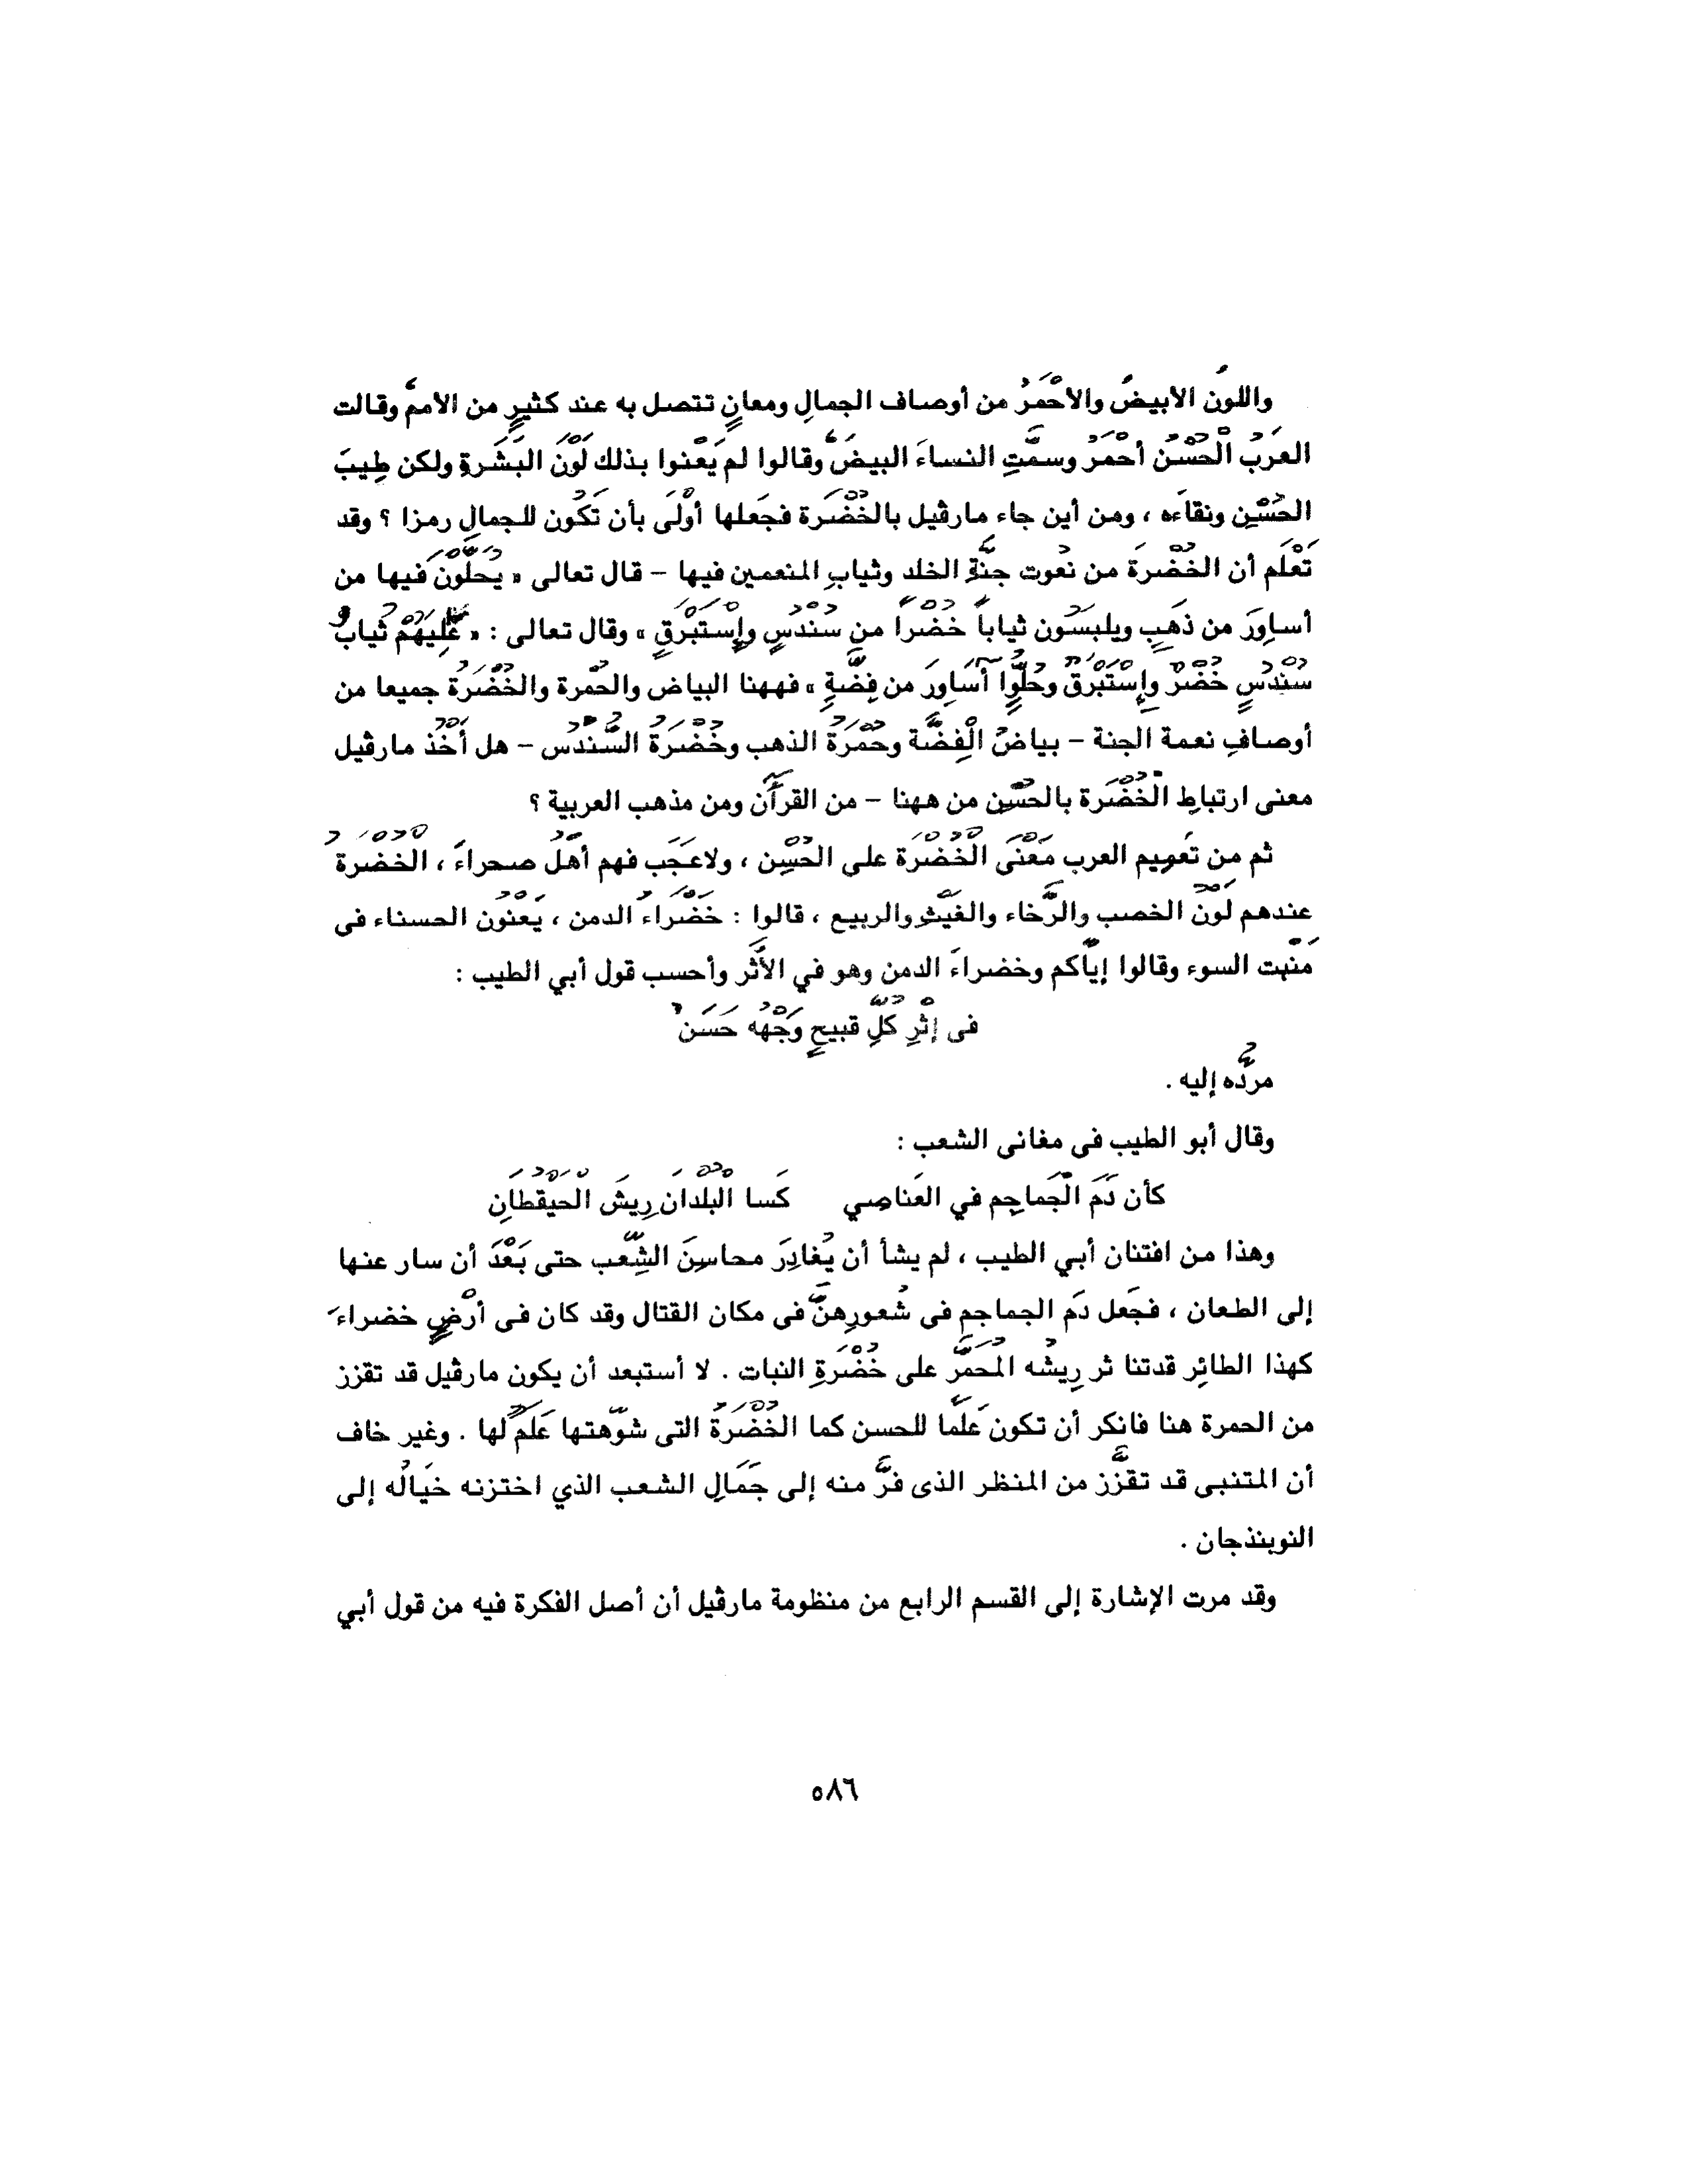 واللونُ الابيضُ والاحْمَرُ من أوصاف الجمالِ ومعانٍ تتصل به عند كثيرٍ من الأممِ وقالت
العَرَبُ الْحُسْنُ أحْمَرُ وسمَّتِ النساءَ البيضَ وقالوا لم يَعْنوا بذلك لَوْنَ البَشَرةِ ولكن طِيبَ
الحُسْنِ ونقاءَه ، ومن أين جاء مارڤيل بالخُضْرَة فجَعلها أوْلَى بأن تَكُون للجمالِ رمزا ؟ وقد
تَعْلَم أن الخُضْرةَ من نُعوت جنَّةِ الخلد وثيابِ المنعمين فيها – قال تعالى « يُحَلَّوْنَ فيها من
أساوِرَ من ذَهَبٍ ويلبسُون ثياباً خُضْراً من سُنْدُسٍ وإِسْتَبْرَقٍ » وقال تعالى : « عَٰلِيَهُمْ ثيابُ
سُنْدُسٍ خُضْرٌ وإِسْتَبْرَقٌ وحُلُّوٓا أَسَاوِرَ من فِضَّةٍ » فههنا البياض والحُمرة والخُضْرَةُ جميعا من
أوصافِ نعمة الجنة – بياضُ الْفِضَّة وحُمْرَةُ الذهب وخُضْرَةُ السُّنْدُس – هل أخَذَ مارڤيل
معنى ارتباطِ الْخُضْرَة بالحُسْنِ من ههنا – من القرآن ومن مذهب العربية ؟
ثم من تَعميم العرب مَعْنَى الْخُضْرَة على الحُسْنِ ، ولاعَجَب فهم أهْلُ صحراءَ ، الْخُضْرَةُ
عندهم لَوْنُ الخصب والرَّخاء والغَيْثِ والربيع ، قالوا : خَضْراءُ الدمن ، يَعْنُون الحسناء فى
مَنْبِت السوء وقالوا إيَّاكم وخضراءَ الدمن وهو في الأَثَر وأحسب قول أبي الطيب :
فى إثْرِ كُلِّ قبيحٍ وَجْهُه حَسَنُ
مردُّه إليه .
وقال أبو الطيب فى مغانى الشعب :
كأن دَمَ الْجَماجِمِ في العَناصِي كَسا الْبُلْدانَ رِيشَ الْحَيْقُطَانِ
وهذا من افتنان أبي الطيب ، لم يشأ أن يُغادِرَ محاسِنَ الشِّعْب حتى بَعْدَ أن سار عنها
إلى الطعان ، فجَعل دَم الجماجم فى شُعورِهنَّ فى مكان القتال وقد كان فى أرْضٍ خضراءَ
كهذا الطائِر قدتنا ثر رِيشُه المُحمَرُّ على خُضْرَةِ النبات . لا أستبعد أن يكون مارڤيل قد تقزز
من الحمرة هنا فانكر أن تكون عَلَماً للحسن كما الخُضْرَةُ التى شوّهتها عَلَمٌ لها . وغير خاف
أن المتنبى قد تقزَّز من المنظر الذى فرَّ منه إلى جَمَالِ الشعب الذي اختزنه خَيالُه إلى
النوبنذجان .
وقد مرت الإشارة إلى القسم الرابع من منظومة مارڤيل أن أصل الفكرة فيه من قول أبي
٥٨٦